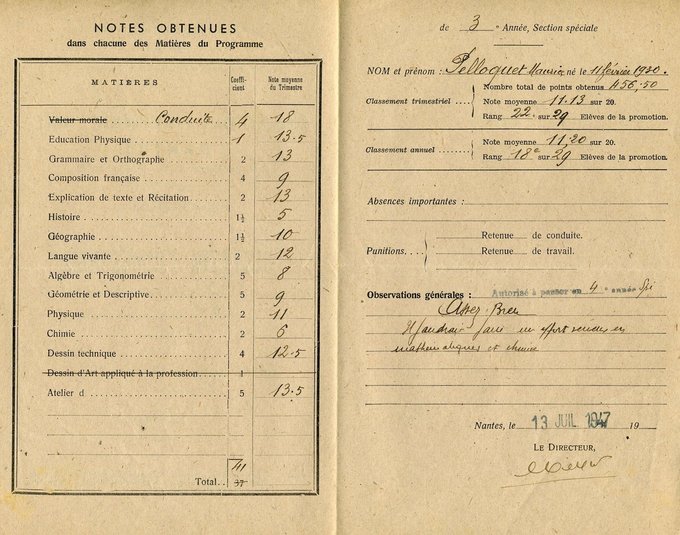 NOTES OBTENUES
dans chacune des Matières du Programme
MATIÈRES Coefficient Note moyenne du Trimestre
Valeur morale Conduite 4 18
Education Physique 1 13.5
Grammaire et Orthographe 2 13
Composition française 4 9
Explication de texte et Récitation 2 13
Histoire 1½ 5
Géographie 1½ 10
Langue vivante 2 12
Algèbre et Trigonométrie 5 8
Géométrie et Descriptive 5 9
Physique 2 11
Chimie 2 6
Dessin technique 4 12.5
Dessin d'Art appliqué à la profession 1
Atelier d 5 13.5
41
Total 37
de 3 Année, Section spéciale
NOM et prénom : Pelloquet Maurice né le 11 février 1930.
Nombre total de points obtenus 456,50
Classement trimestriel Note moyenne 11.13 sur 20.
Rang 22 sur 29 Elèves de la promotion.
Classement annuel Note moyenne 11,20 sur 20.
Rang 18e sur 29 Elèves de la promotion.
Absences importantes :
Punitions Retenue de conduite.
Retenue de travail.
Observations générales : Autorisé à passer en 4e année
Assez Bien
Il faudrait faire un effort en
mathématiques et chimie
Nantes, le 13 JUIL 1947 19
LE DIRECTEUR,